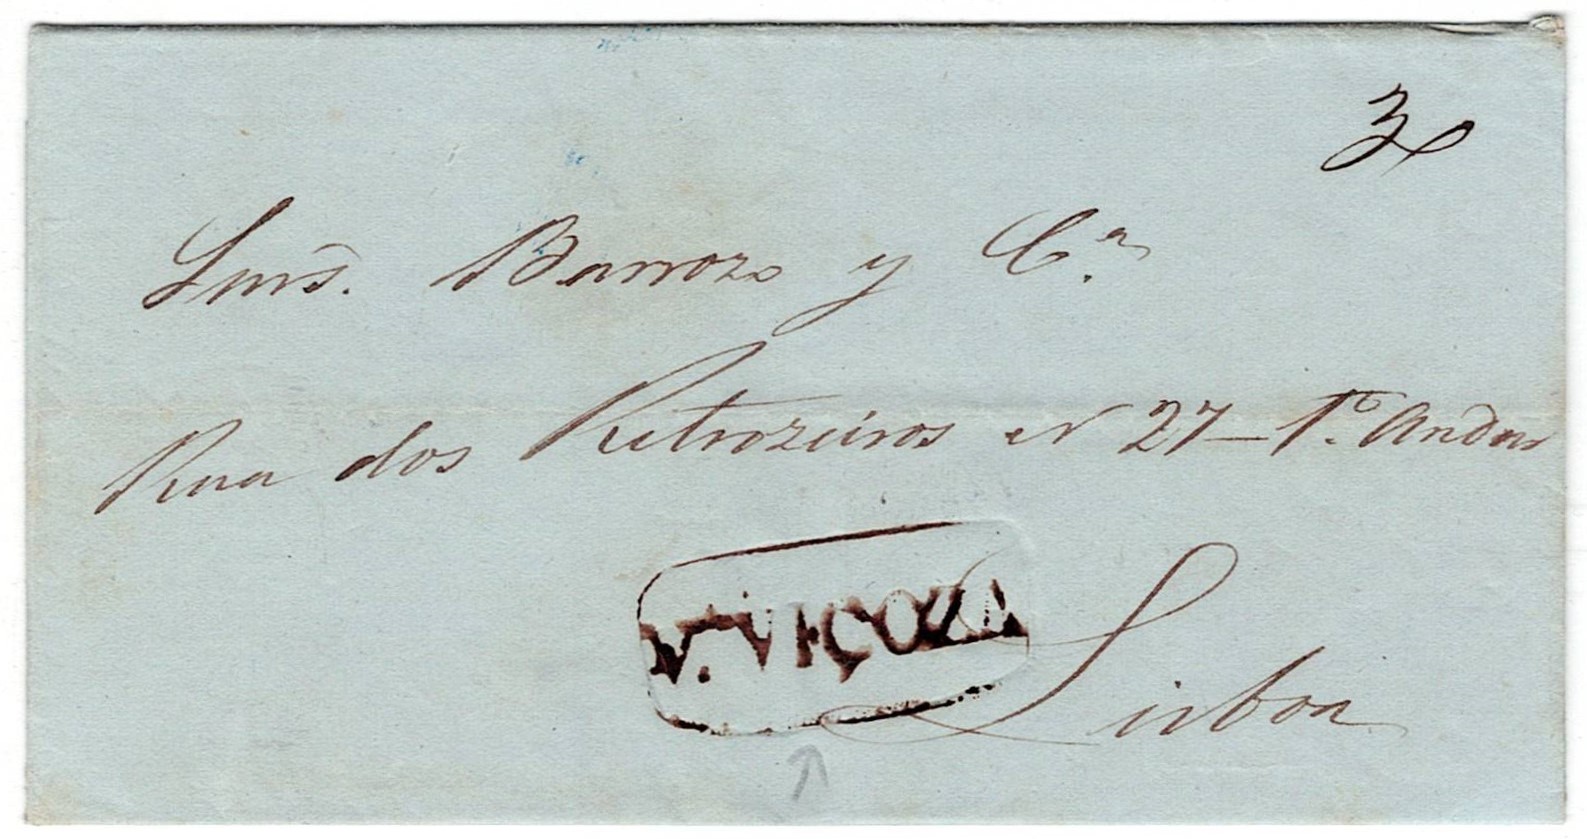 Snrs. Barrozo y Cª.
Rua dos Retrozeiros N 27 — 1º. Andar
V.ª VIÇOZA
Lisboa